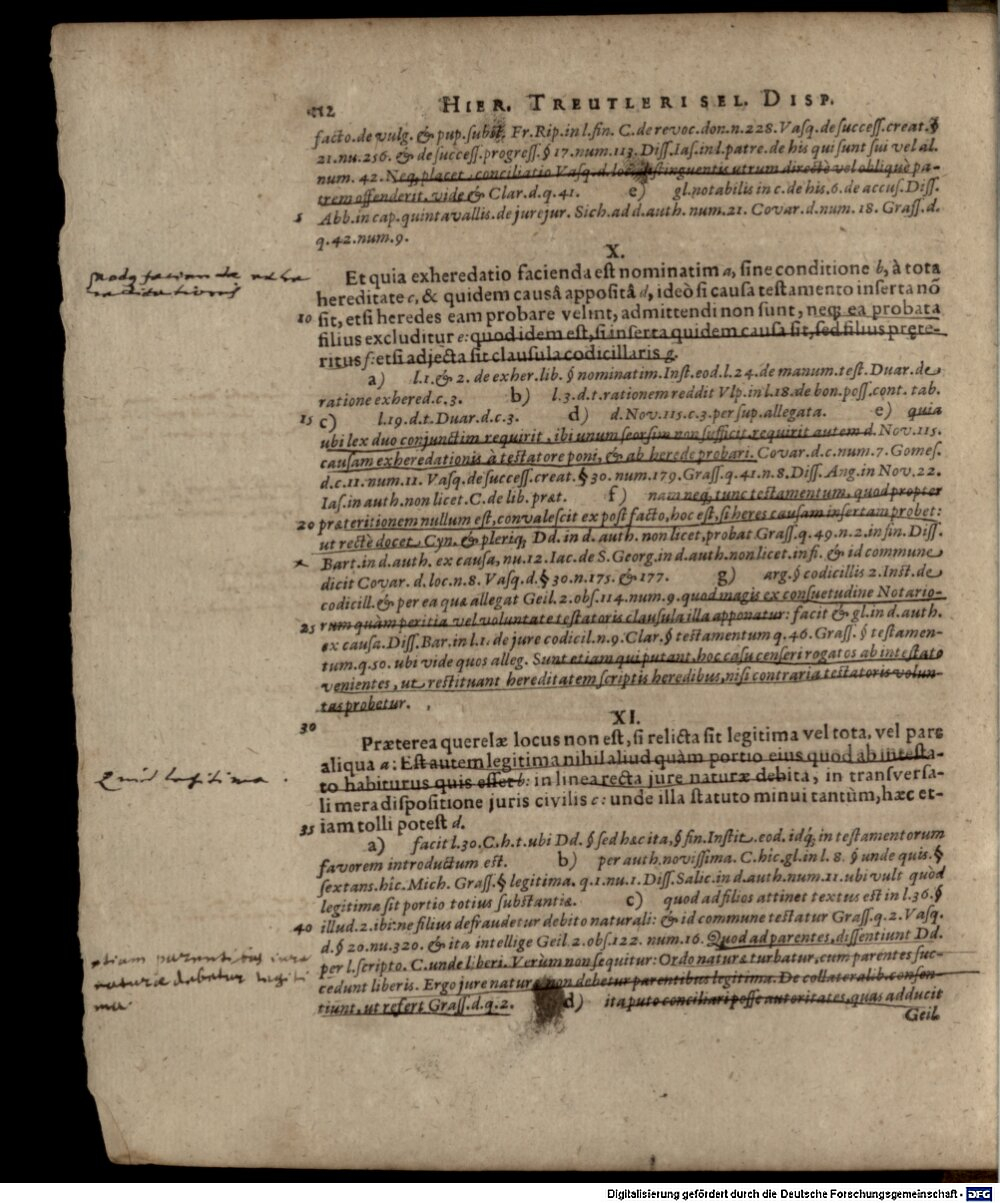 12 HIER. TREUTLERI SEL. DISP.
facto. de vulg. & pup. subst. Fr. Rip. in l. fin. C. de revoc. don. n. 228. Vasq. de success. creat. §
21. nu. 256. & de success. progress. § 17. num. 113. Diss. Ias. in l. patre. de his qui sunt sui vel al.
num. 42. Neq; placet, conciliatio Vasq. d. loc. distinguentis utrum directè vel obliquè pa-
trem offenderit. vide & Clar. d. q. 41. e) gl. notabilis in c. de his. 6. de accus. Diss.
5 Abb. in cap. quintavallis. de jurejur. Sich. ad d. auth. num. 21. Covar. d. num. 18. Grass. d.
q. 42. num. 9.
X.
Et quia exheredatio facienda est nominatim a, sine conditione b, à tota
hereditate c, & quidem causâ appositâ d, ideò si causa testamento inserta nō
10 sit, etsi heredes eam probare velint, admittendi non sunt, neq; ea probata
filius excluditur e: quod idem est, si inserta quidem causa sit, sed filius præte-
ritus f: etsi adjecta sit clausula codicillaris g.
a) l. 1. & 2. de exher. lib. § nominatim. Inst. eod. l. 24. de manum. test. Duar. de
ratione exhered. c. 3. b) l. 3. d. t. rationem reddit Vlp. in l. 18. de bon. poss. cont. tab.
15 c) l. 19. d. t. Duar. d. c. 3. d) d. Nov. 115. c. 3. per sup. allegata. e) quia
ubi lex duo conjunctim requirit, ibi unum seorsim non sufficit, requirit autem d. Nov. 115.
causam exheredationis à testatore poni, & ab herede probari. Covar. d. c. num. 7. Gomes.
d. c. 11. num. 11. Vasq. de success. creat. § 30. num. 179. Grass. q. 41. n. 8. Diss. Ang. in Nov. 22.
Ias. in auth. non licet. C. de lib. præt. f) nam neq; tunc testamentum, quod propter
20 præteritionem nullum est, convalescit ex post facto, hoc est, si heres causam insertam probet:
ut rectè docet Cyn. & pleriq; Dd. in d. auth. non licet, probat Grass. q. 49. n. 2. in fin. Diss.
Bart. in d. auth. ex causa, nu. 12. Iac. de S. Georg. in d. auth. non licet. in fi. & id commune
dicit Covar. d. loc. n. 8. Vasq. d. § 30. n. 175. & 177. g) arg. § codicillis 2. Inst. de
codicill. & per ea quæ allegat Geil. 2. obs. 114. num. 9. quod magis ex consuetudine Notario-
25 rum quàm peritia vel voluntate testatoris clausula illa apponatur: facit & gl. in d. auth.
ex causa. Diss. Bar. in l. 1. de jure codicil. n. 9. Clar. § testamentum q. 46. Grass. § testamen-
tum. q. 50. ubi vide quos alleg. Sunt etiam qui putant, hoc casu censeri rogatos ab intestato
venientes, ut restituant hereditatem scriptis heredibus, nisi contraria testatoris volun-
tas probetur.
30 XI.
Præterea querelæ locus non est, si relicta sit legitima vel tota, vel pars
aliqua a: Est autem legitima nihil aliud quàm portio eius quod ab intesta-
to habiturus quis esset b: in linea recta jure naturæ debita, in transversa-
li mera dispositione juris civilis c: unde illa statuto minui tantùm, hæc et-
35 iam tolli potest d.
a) facit l. 30. C. h. t. ubi Dd. § sed hæc ita, § fin. Instit. eod. idq́; in testamentorum
favorem introductum est. b) per auth. novissima. C. hic. gl. in l. 8. § unde quis. §
sextans. hîc. Mich. Grass. § legitima. q. 1. nu. 1. Diss. Salic. in d. auth. num. 11. ubi vult quod
legitima sit portio totius substantiæ. c) quod ad filios attinet textus est in l. 36. §
40 illud. 2. ibi: ne filius defraudetur debito naturali: & id commune testatur Grass. q. 2. Vasq.
d. § 20. nu. 320. & ita intellige Geil. 2. obs. 122. num. 16. Quod ad parentes, dissentiunt Dd.
per l. scripto. C. unde liberi. Verùm non sequitur: Ordo naturæ turbatur, cum parentes suc-
cedunt liberis. Ergo jure naturæ non debetur parentibus legitima. De collateralib. consen-
tiunt, ut refert Grass. d. q. 2. d) ita puto conciliari posse autoritates, quas adducit
Geil.
Quid legitima.
etiam parentibus jure
naturæ debetur legiti
ma
Digitalisierung gefördert durch die Deutsche Forschungsgemeinschaft - DFG